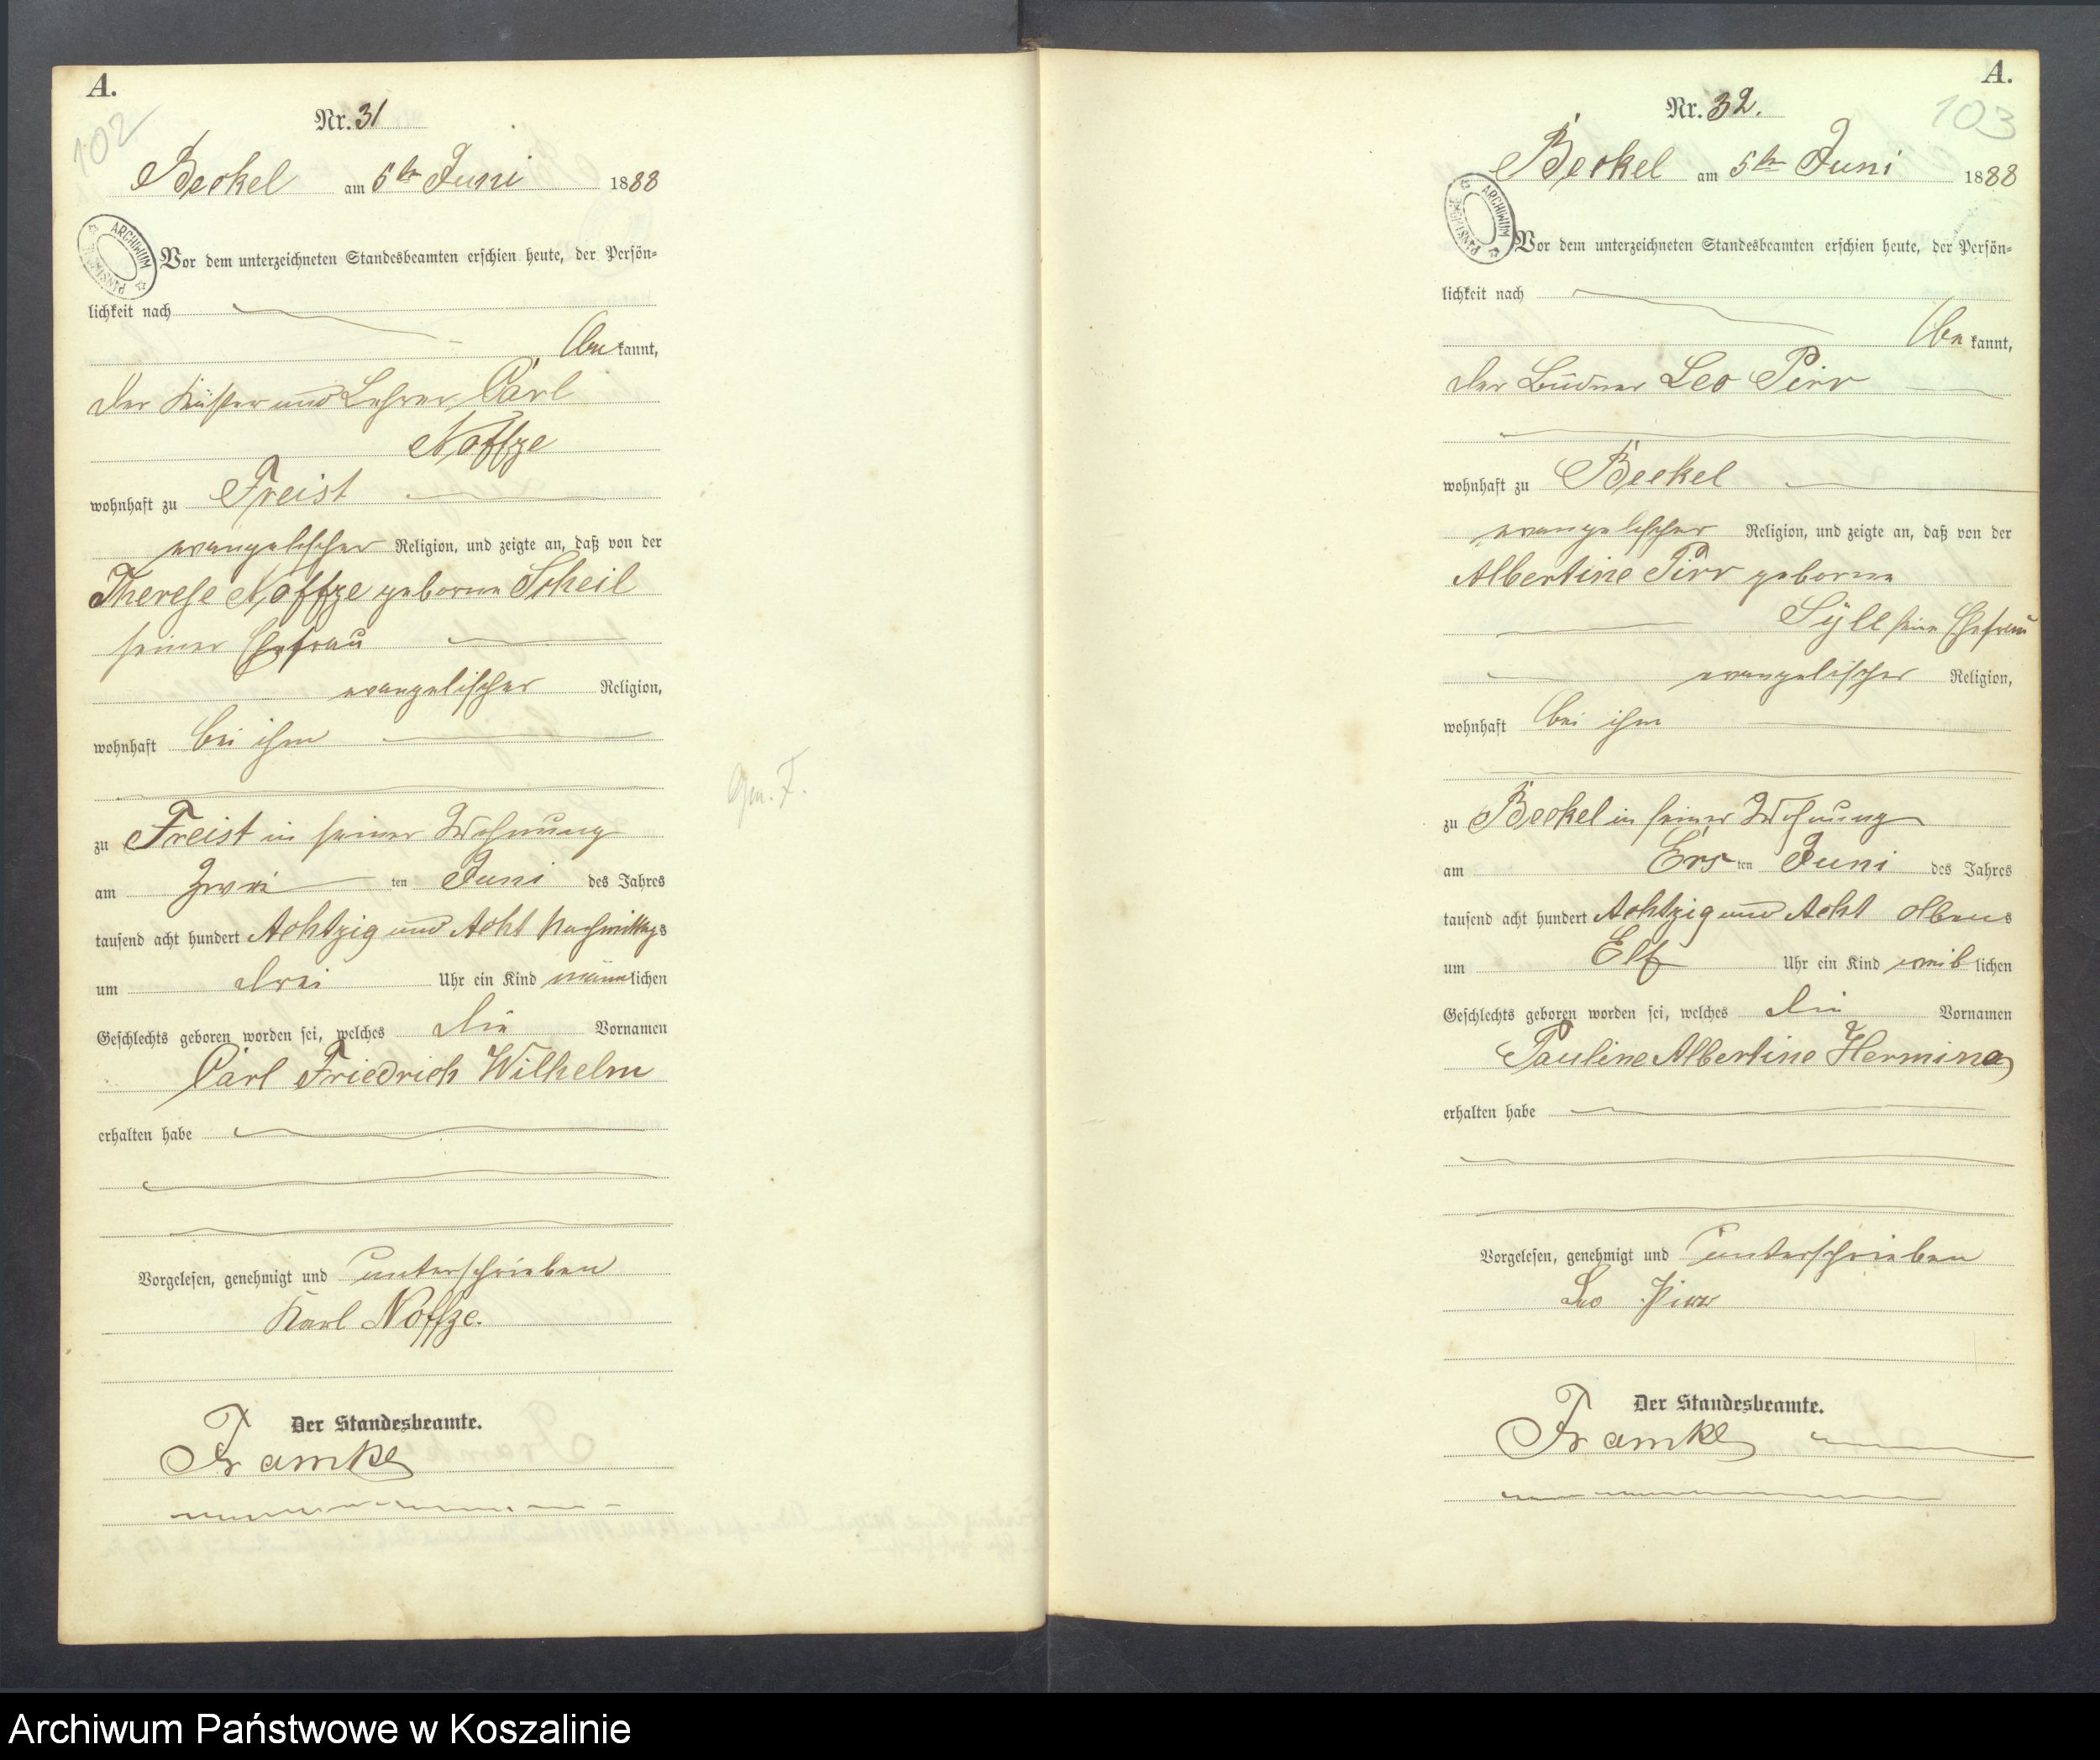 A.
102
Nr. 31
Beckel am 5ten Juni 1888
ARCHIWUM PAŃSTWOWE
Vor dem unterzeichneten Standesbeamten erschien heute, der Persön-
lichkeit nach
bekannt,
der Küster und Lehrer Carl
Noffze
wohnhaft zu Freist
evangelischer Religion, und zeigte an, daß von der
Therese Noffze geborne Scheil
seiner Ehefrau
evangelischer Religion,
wohnhaft bei ihm
zu Freist in seiner Wohnung
am Zwei ten Juni des Jahres
tausend acht hundert Achtzig und Acht Nachmittags
um drei Uhr ein Kind männlichen
Geschlechts geboren worden sei, welches die Vornamen
Carl Friedrich Wilhelm
erhalten habe
Vorgelesen, genehmigt und unterschrieben
Karl Noffze.
Der Standesbeamte.
Framke
A.
103
Nr. 32.
Beckel am 5ten Juni 1888
ARCHIWUM PAŃSTWOWE
Vor dem unterzeichneten Standesbeamten erschien heute, der Persön-
lichkeit nach
bekannt,
der Büdner Leo Pirr
wohnhaft zu Beckel
evangelischer Religion, und zeigte an, daß von der
Albertine Pirr geborne
Syll seine Ehefrau
evangelischer Religion,
wohnhaft bei ihm
zu Beckel in seiner Wohnung
am Ersten Juni des Jahres
tausend acht hundert Achtzig und Acht Abends
um Elf Uhr ein Kind weiblichen
Geschlechts geboren worden sei, welches die Vornamen
Pauline Albertine Hermine
erhalten habe
Vorgelesen, genehmigt und unterschrieben
Leo Pirr
Der Standesbeamte.
Framke
Archiwum Państwowe w Koszalinie